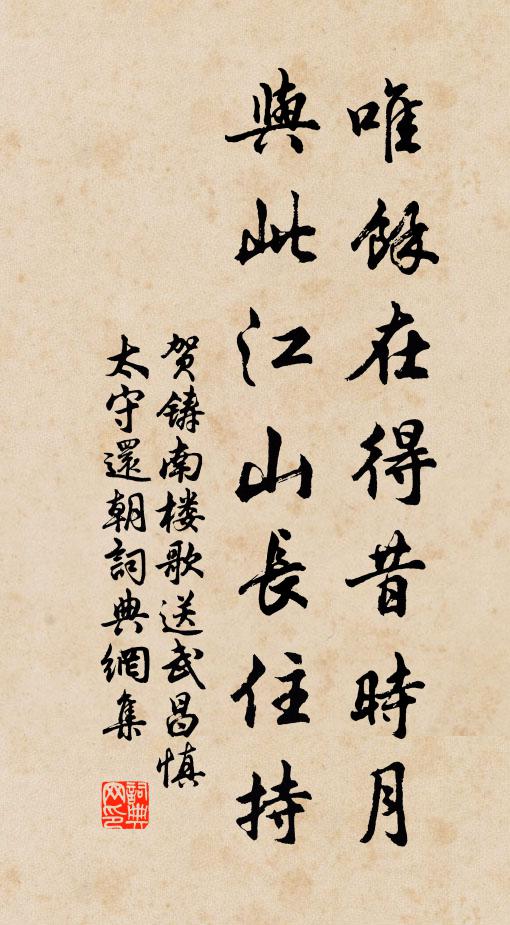 唯餘在得昔時月
與此江山長住持
賀鑄南楼歌送武昌慎
太守還朝詞典網集
詞典网印